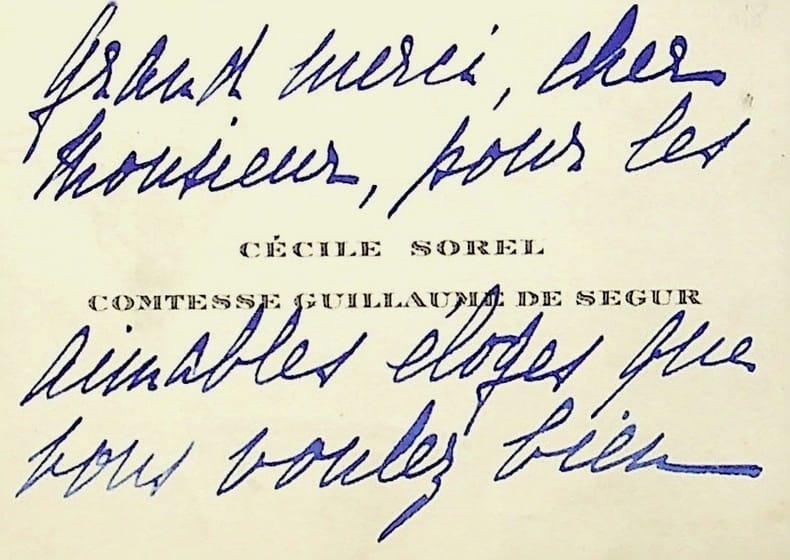 Grand merci, cher
Monsieur, pour les
CÉCILE SOREL
COMTESSE GUILLAUME DE SEGUR
aimables éloges que
vous voulez bien